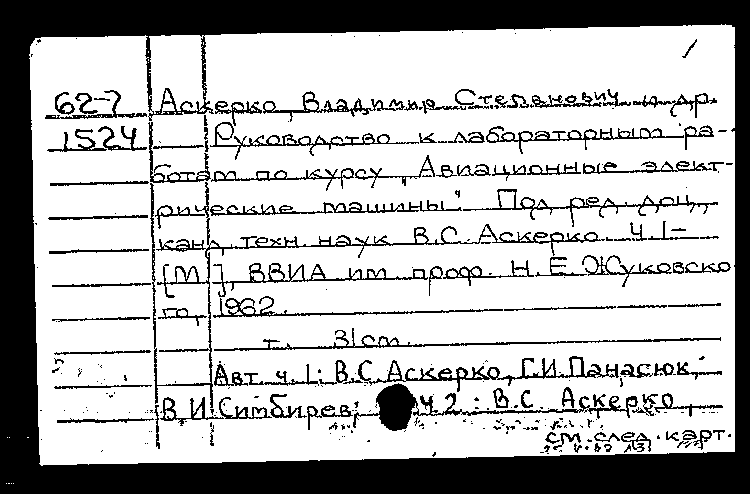 62-7 Аскерко, Владимир Степанович и др.
1524 Руководство к лабораторным ра-
ботам по курсу „Авиационные элект-
рические машины". Под ред. доц.,
канд. техн. наук В.С. Аскерко. Ч. 1-
[М.], ВВИА им. проф. Н.Е. Жуковско-
го, 1962.
т. 31 cm.
Авт. ч. 1: В.С. Аскерко, Г.И. Панасюк,
В.И. Симбирев; ч 2: В.С. Аскерко,
см. след. карт.